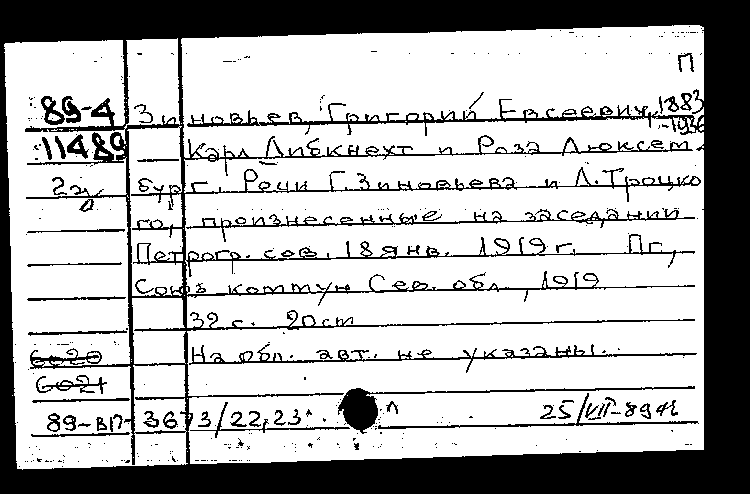 П
89-4 Зиновьев, Григорий Евсеевич, 1883
-1936
11489 Карл Либкнехт и Роза Люксем-
2э бург. Речи Г.Зиновьева и Л.Троцко
го, произнесенные на заседании
Петрогр. сов. 18 янв. 1919 г. Пг,
Союз коммун Сев. обл, 1919
32 с. 20 cm
6020 На обл. авт. не указаны.
6021
89-ВП-3673/22,23 Л 25/VII-89